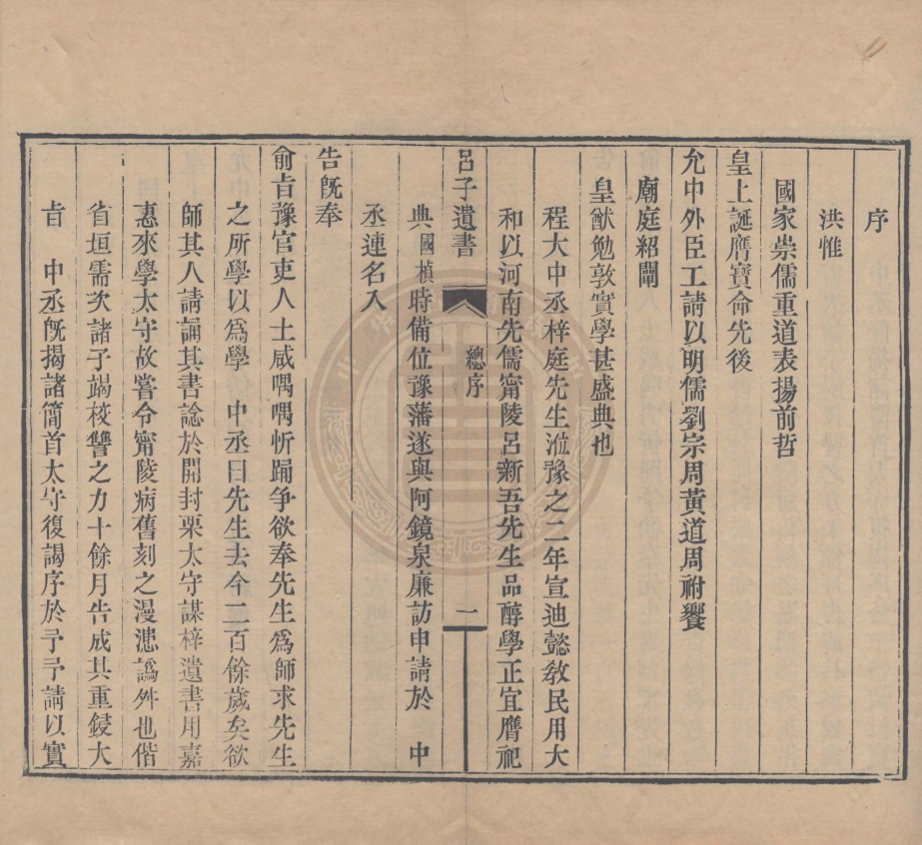 序
洪惟
國家崇儒重道表揚前哲
皇上誕膺寶命先後
允中外臣工請以明儒劉宗周黃道周祔饗
廟庭紹闡
皇猷勉敦實學甚盛典也
程大中丞梓庭先生涖豫之二年宣迪懿敎民用大
和以河南先儒甯陵呂新吾先生品醇學正宜膺祀
呂子遺書 總序 一
典國楨時備位豫藩遂與阿鏡泉廉訪申請於 中
丞連名入
告旣奉
俞㫖豫官吏人士咸喁喁忻踊爭欲奉先生爲師求先生
之所學以爲學 中丞曰先生去今二百餘歲矣欲
師其人請誦其書諗於開封栗太守謀梓遺書用嘉
惠來學太守故嘗令甯陵病舊刻之漫漶譌舛也偕
省垣需次諸子竭校讐之力十餘月告成其重鋟大
㫖 中丞旣揭諸簡首太守復謁序於予予請以實